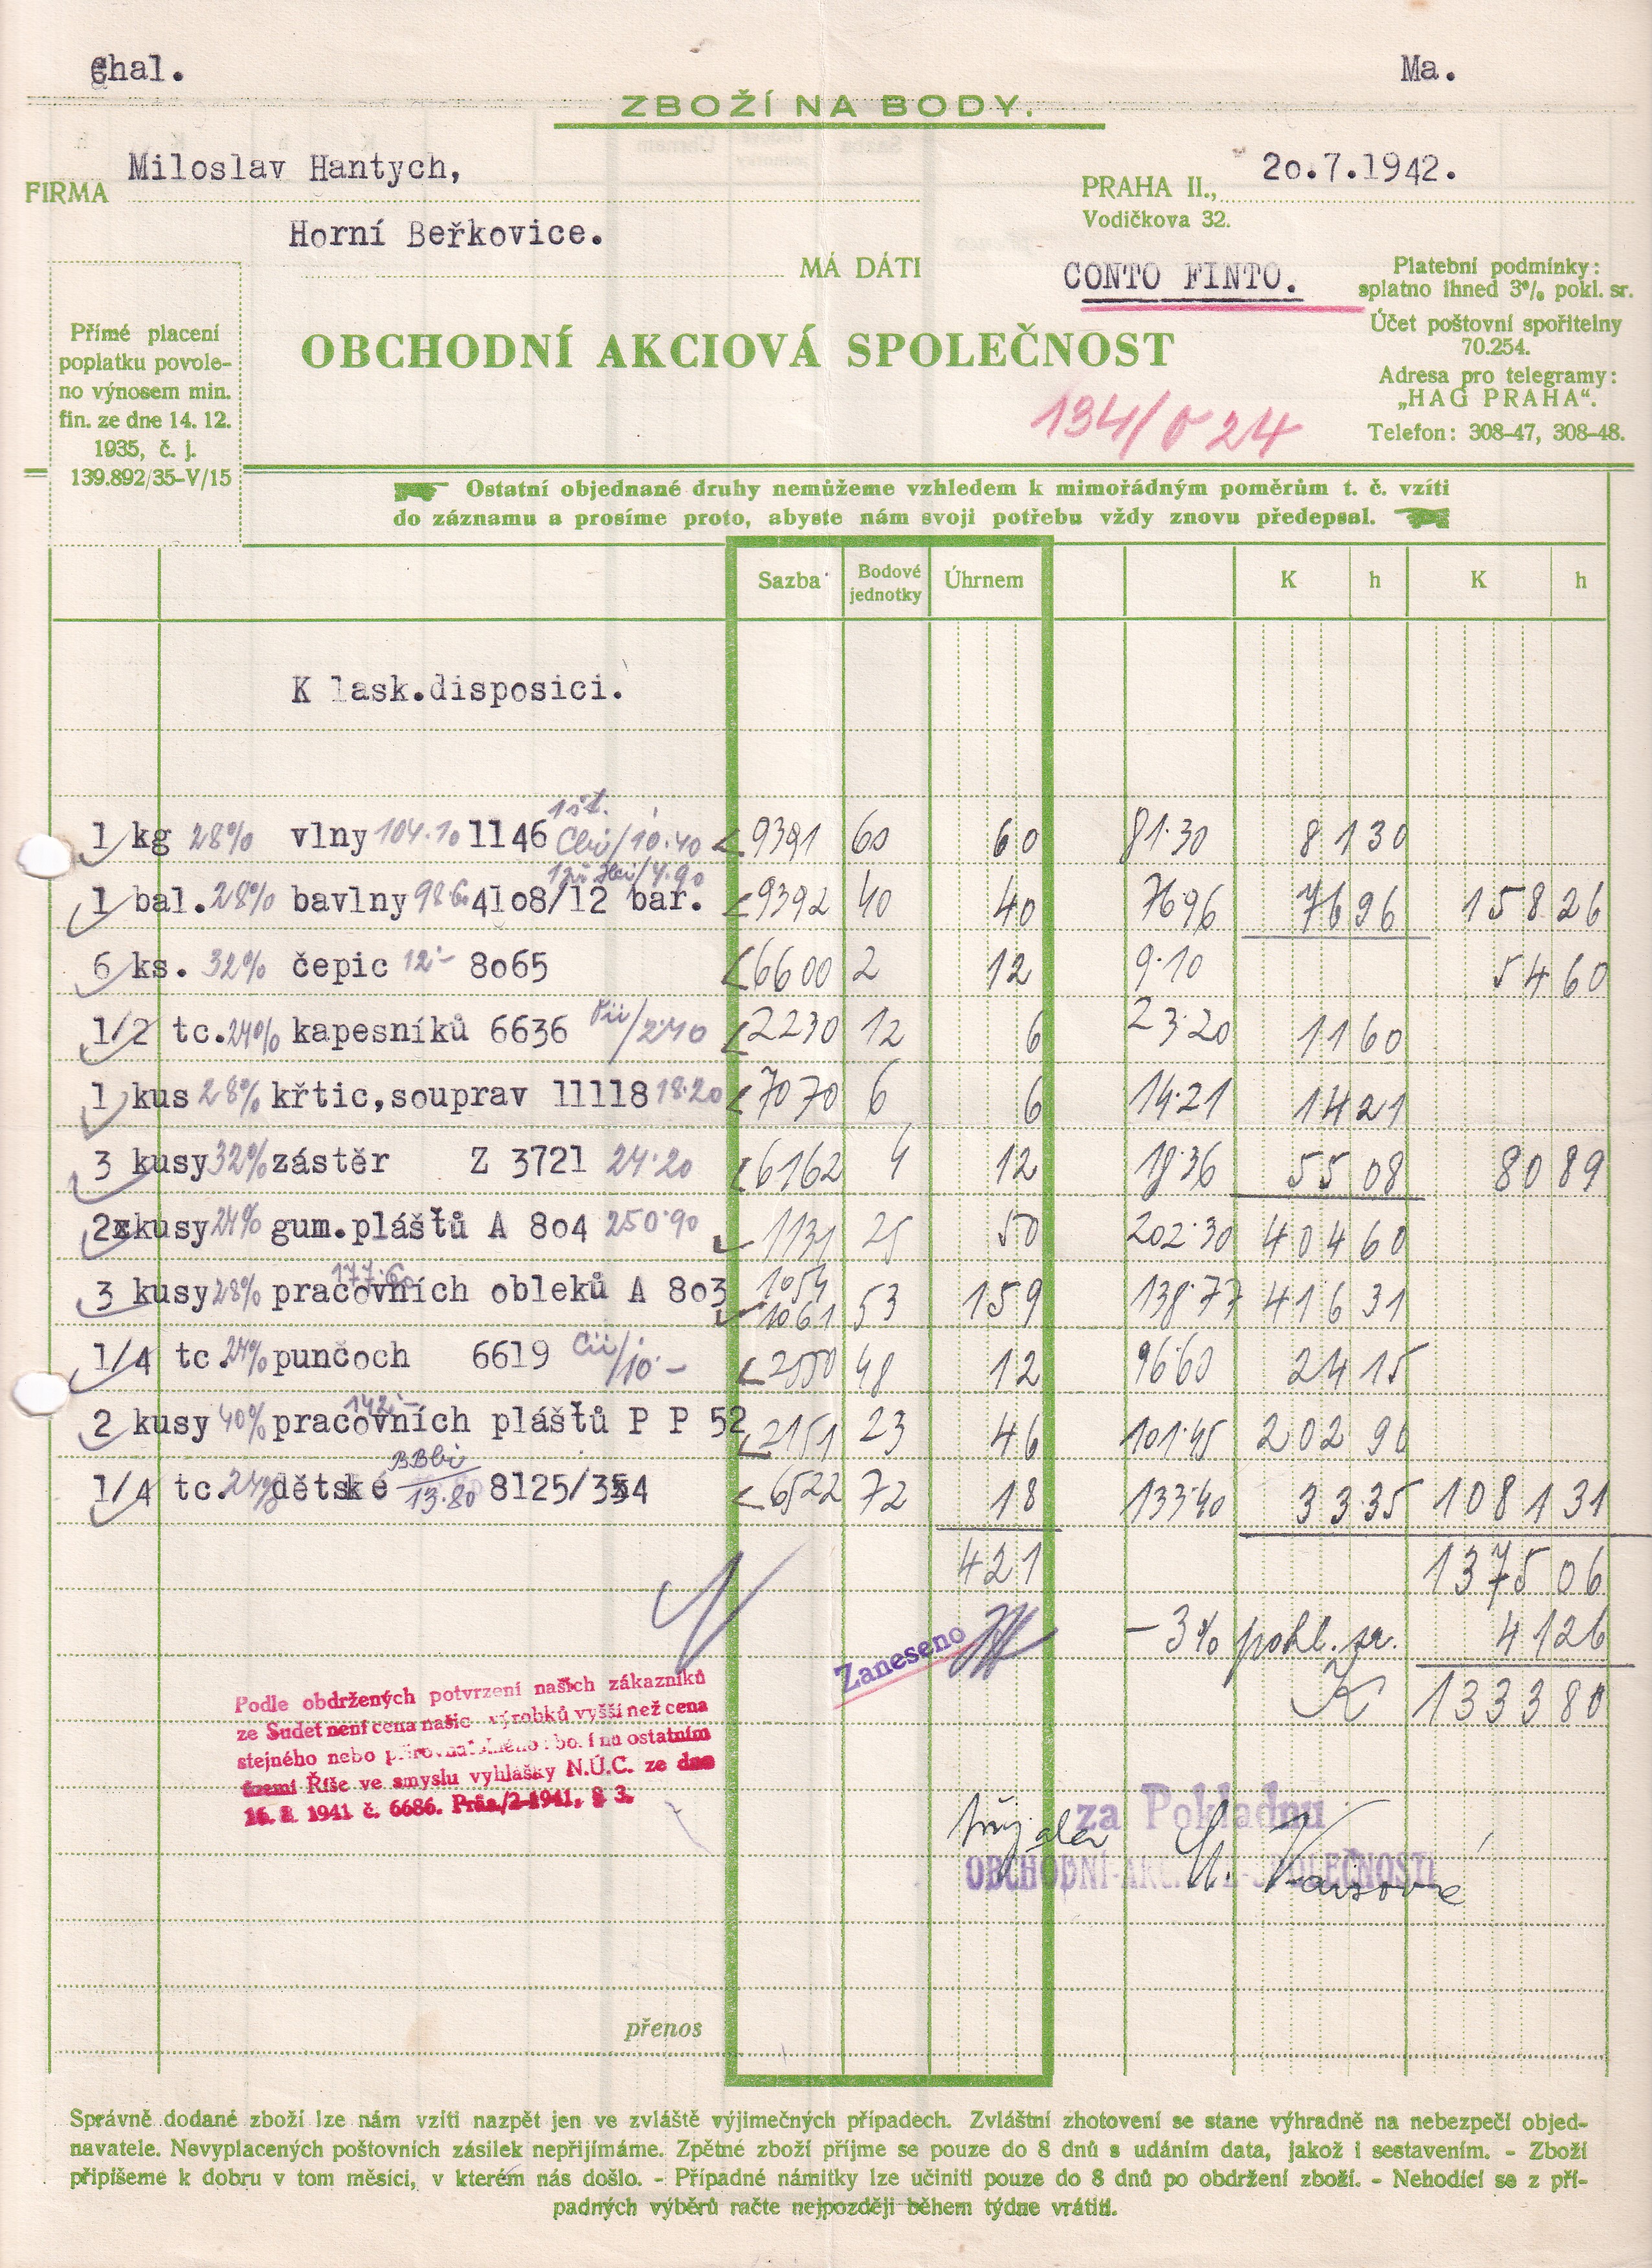 Chal.
Ma.
ZBOŽÍ NA BODY.
FIRMA Miloslav Hantych,
Horní Beřkovice.
MÁ DÁTI
PRAHA II., 2o.7.1942.
Vodičkova 32.
CONTO FINTO.
Platební podmínky:
splatno ihned 3% pokl. sr.
Účet poštovní spořitelny
70.254.
Adresa pro telegramy:
„HAG PRAHA“.
Telefon: 308-47, 308-48.
Přímé placení
poplatku povole-
no výnosem min.
fin. ze dne 14. 12.
1935, č. j.
139.892/35-V/15
OBCHODNÍ AKCIOVÁ SPOLEČNOST
Ostatní objednané druhy nemůžeme vzhledem k mimořádným poměrům t. č. vzíti
do záznamu a prosíme proto, abyste nám svoji potřebu vždy znovu předepsal.
Sazba Bodové jednotky Úhrnem K h K h
K lask.disposici.
1 kg 28% vlny 104.10 1146 10.40 9391 60 60 81.30 81 30
1 bal. 28% bavlny 98.60 41o8/12 bar. 4.90 9392 40 40 76.96 76 96 158 26
6 ks. 32% čepic 12.- 8o65 6600 2 12 9.10 54 60
1/2 tc. 24% kapesníků 6636 /2.40 2230 12 6 23.20 11 60
1 kus 28% křtic,souprav 11118 18.20 7070 6 6 14.21 14 21
3 kusy 32% zástěr Z 3721 24.20 6162 4 12 18.36 55 08 80 89
2 kusy 24% gum.pláštů A 8o4 250.90 1131 25 50 202.30 404 60
3 kusy 28% pracovních obleků A 8o3 177.60 1054 1061 53 159 138.77 416 31
1/4 tc. 24% punčoch 6619 /10.- 2550 48 12 96.60 24 15
2 kusy 40% pracovních pláštů P P 52 142.- 2151 23 46 101.45 202 90
1/4 tc. 24% dětské 13.80 8125/354 6522 72 18 133.40 33 35 1081 31
421 1375 06
- 3% pokl. sr. 41 26
K 1333 80
Zaneseno
Podle obdržených potvrzení našich zákazníků
ze Sudet není cena našic výrobků vyšší než cena
stejného nebo zboží na ostatním
území Říše ve smyslu vyhlášky N.Ú.C. ze dne
1941 č. 6686. Präs./2-1941, § 3.
za Pokladnu
OBCHODNÍ AKCIOVÉ SPOLEČNOSTI
přenos
Správně dodané zboží lze nám vzíti nazpět jen ve zvláště výjimečných případech. Zvláštní zhotovení se stane výhradně na nebezpečí objed-
navatele. Nevyplacených poštovních zásilek nepřijímáme. Zpětné zboží příjme se pouze do 8 dnů s udáním data, jakož i sestavením. - Zboží
připíšeme k dobru v tom měsíci, v kterém nás došlo. - Případné námitky lze učiniti pouze do 8 dnů po obdržení zboží. - Nehodící se z pří-
padných výběrů račte nejpozději během týdne vrátiti.